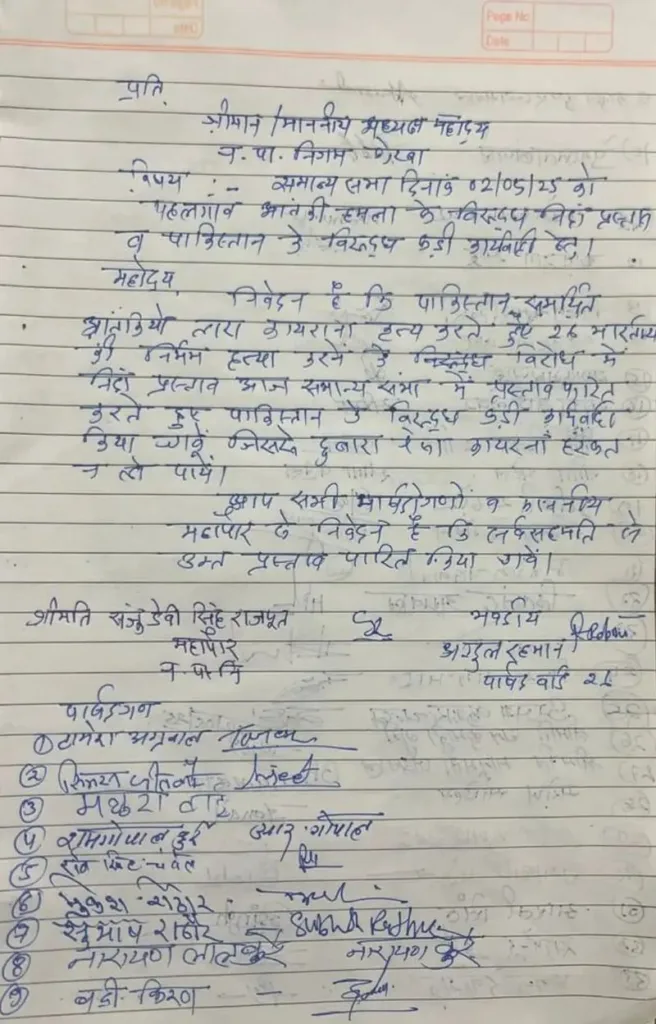 Page No
Date
प्रति,
श्रीमान /माननीय अध्यक्ष महोदय
न. पा. निगम कोरबा
विषय :- समान्य सभा दिनांक 02/05/25 को
पहलगाव आतंकी हमला के विरूद्ध निंदा प्रस्ताव
व पाकिस्तान के विरूद्ध कड़ी कार्यवाही हेतु।
महोदय,
निवेदन है कि पाकिस्तान समर्थित
आंतकियो द्वारा कायराना हत्य करते हुए 26 भारतीय
की निर्मम हत्या करने के विरूद्ध विरोध में
निंदा प्रस्ताव आज समान्य सभा में प्रस्ताव पारित
करते हुए पाकिस्तान के विरूद्ध कड़ी कार्यवाही
किया जावें जिससे दुबारा ऐसा कायरना हरकत
न हो पाये।
आप सभी पार्षदगणों व माननीय
महापौर से निवेदन है कि सर्वसहमति से
उक्त प्रस्ताव पारित किया जाये।
श्रीमति संजु देवी सिंह राजपूत भवदीय
महापौर अब्दुल रहमान
न. पा. नि पार्षद वार्ड 26
पार्षदगण
① अग्रवाल
②
③ मथुरा बाई
④ रामगोपाल कुर्रे गोपाल
⑤
⑥ मुकेश राठौर
⑦ सुभाष राठौर
⑧ नारायण लाल कुर्रे नारायण कुर्रे
⑨ बद्री किरण